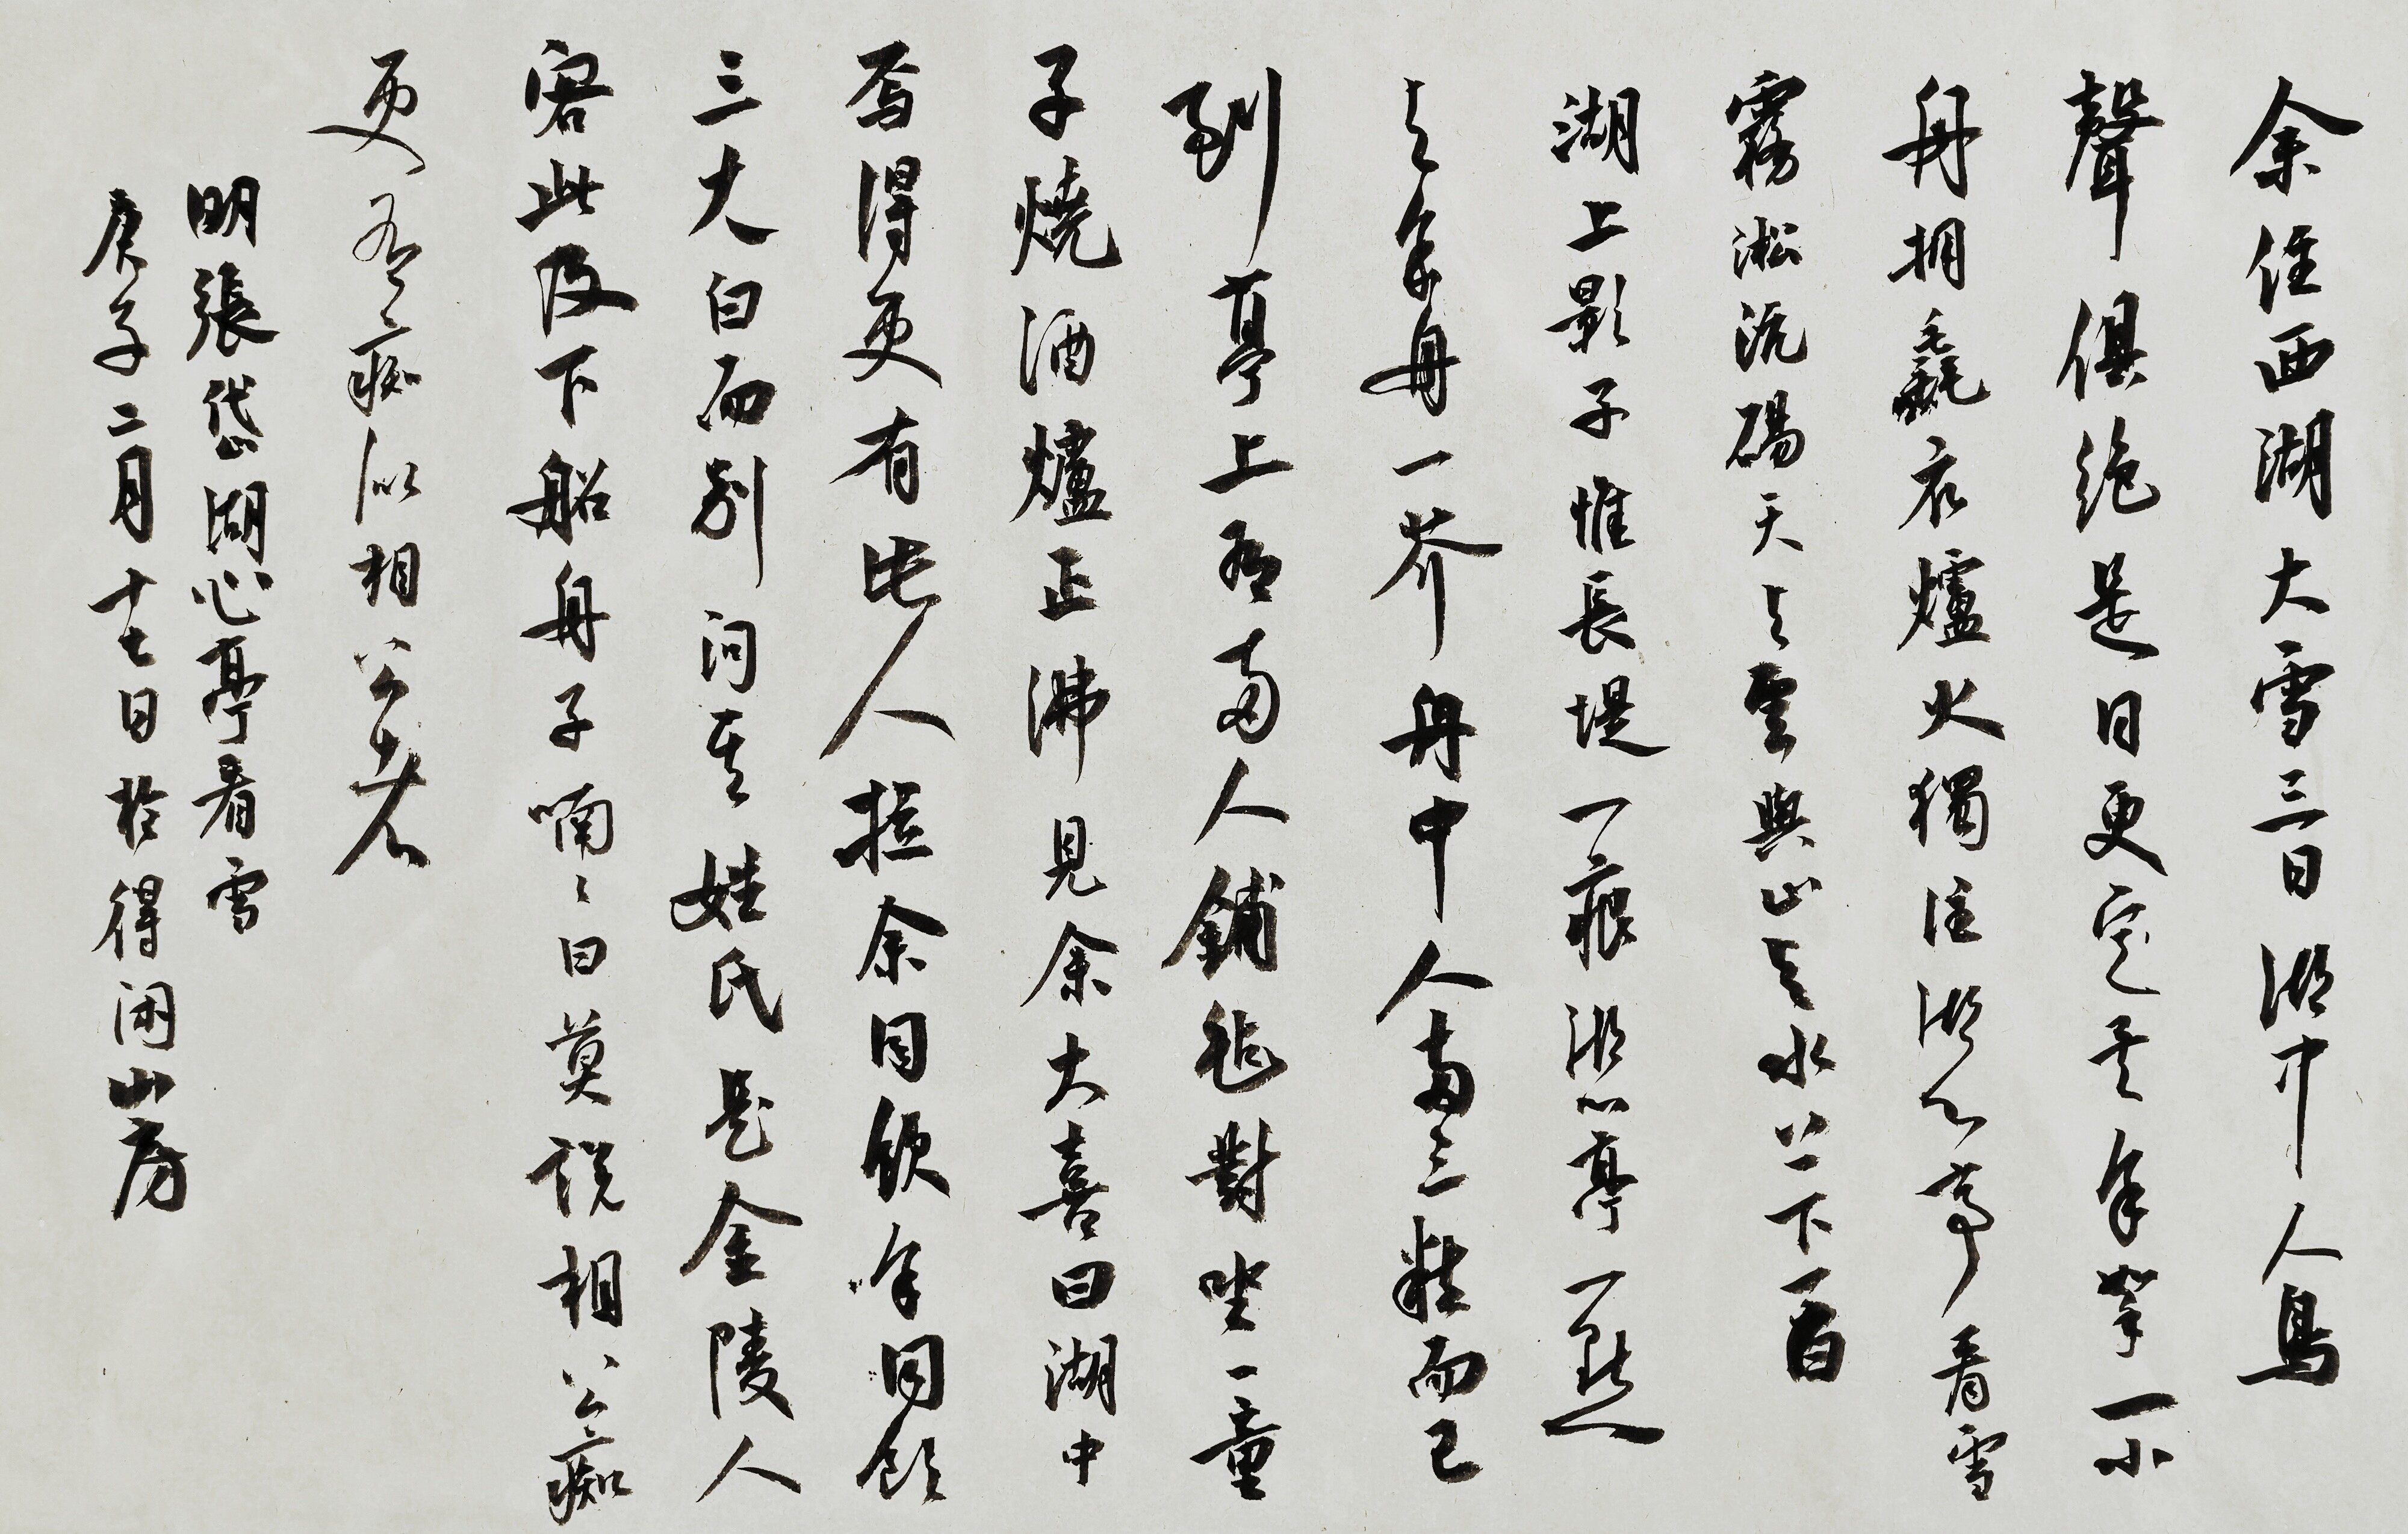 余住西湖大雪三日湖中人鳥
聲俱絕是日更定矣余拏一小
舟拥毳衣爐火獨往湖心亭看雪
霧淞沆碭天与雲與山与水上下一白
湖上影子惟長堤一痕湖心亭一點
与余舟一芥舟中人兩三粒而已
到亭上有兩人鋪毡對坐一童
子燒酒爐正沸見余大喜曰湖中
焉得更有此人拉余同飲余同飲
三大白而別问其姓氏是金陵人
客此及下船舟子喃〻曰莫説相公痴
更有痴似相公者
明張岱湖心亭看雪
庚子二月十七日於得闲山房